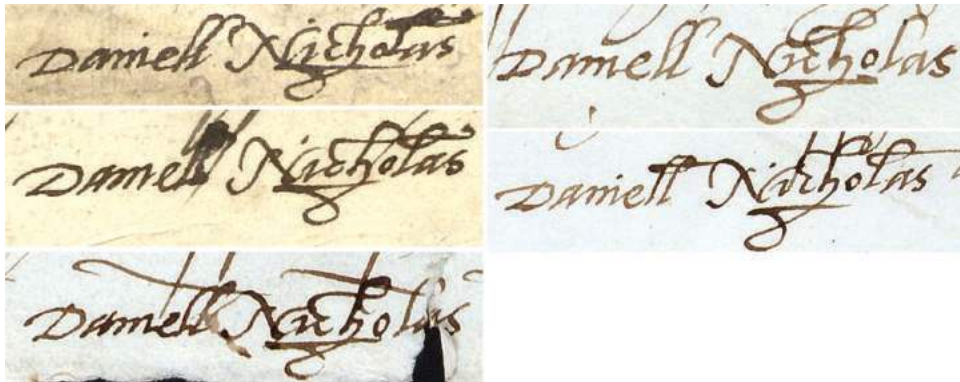 Daniell Nicholas
Daniell Nicholas
Daniell Nicholas
Daniell Nicholas
Daniell Nicholas